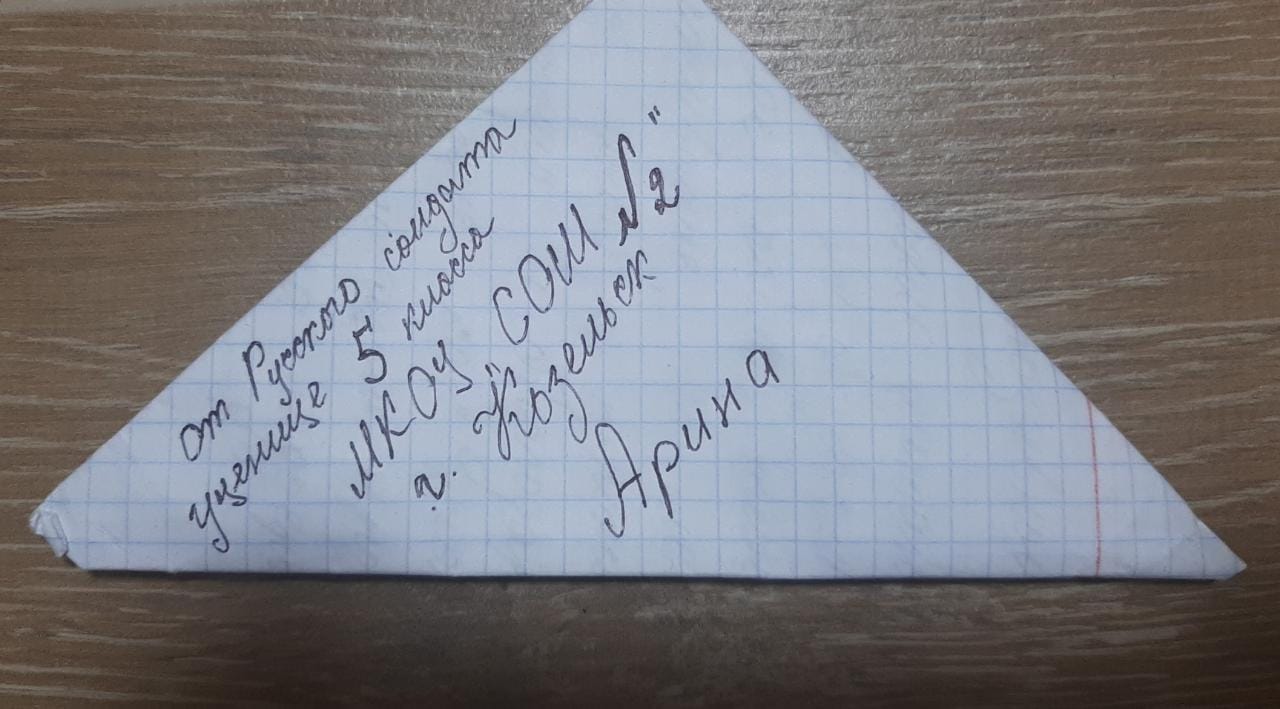 от Русского солдата
ученице 5 класса
МКОУ "СОШ №2"
г. Козельск
Арина